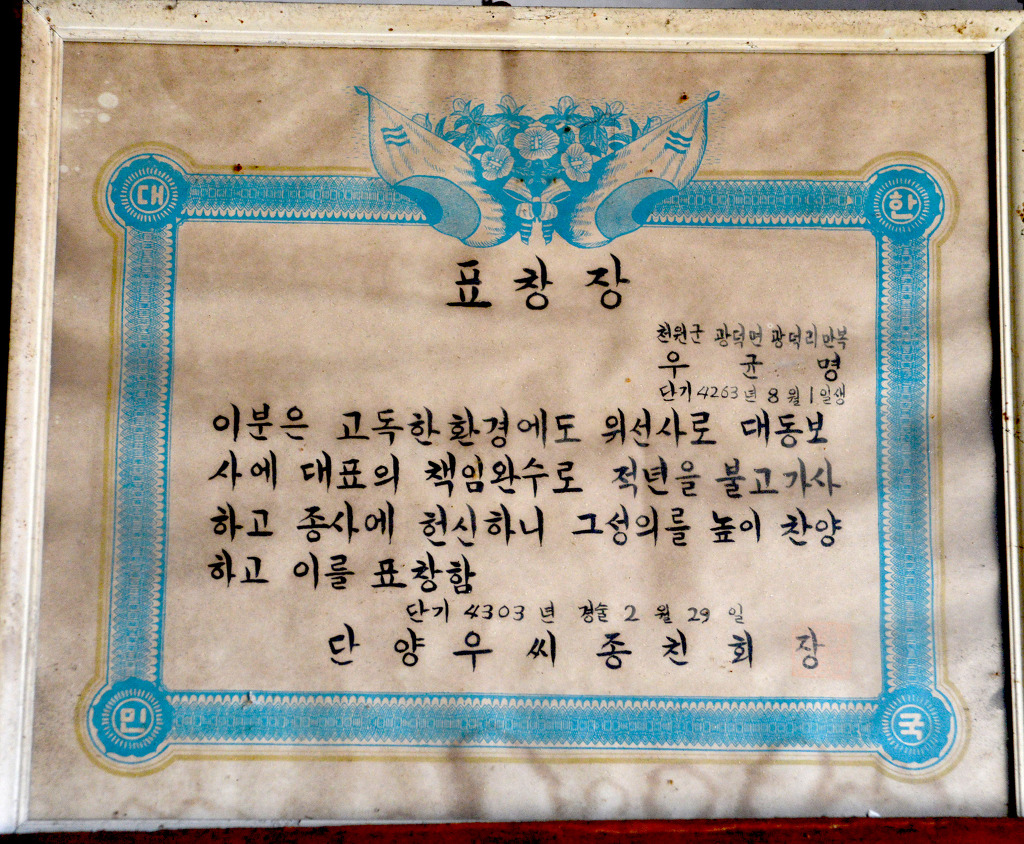 대 한
표 창 장
천원군 광덕면 광덕리 만복
우 균 명
단기 4263년 8월 1일생
이분은 고독한 환경에도 위선사로 대동보
사에 대표의 책임완수로 적년을 불고가사
하고 종사에 헌신하니 그성의를 높이 찬양
하고 이를 표창함
단기 4303년 경술 2월 29일
단 양 우 씨 종 친 회 장
민 국